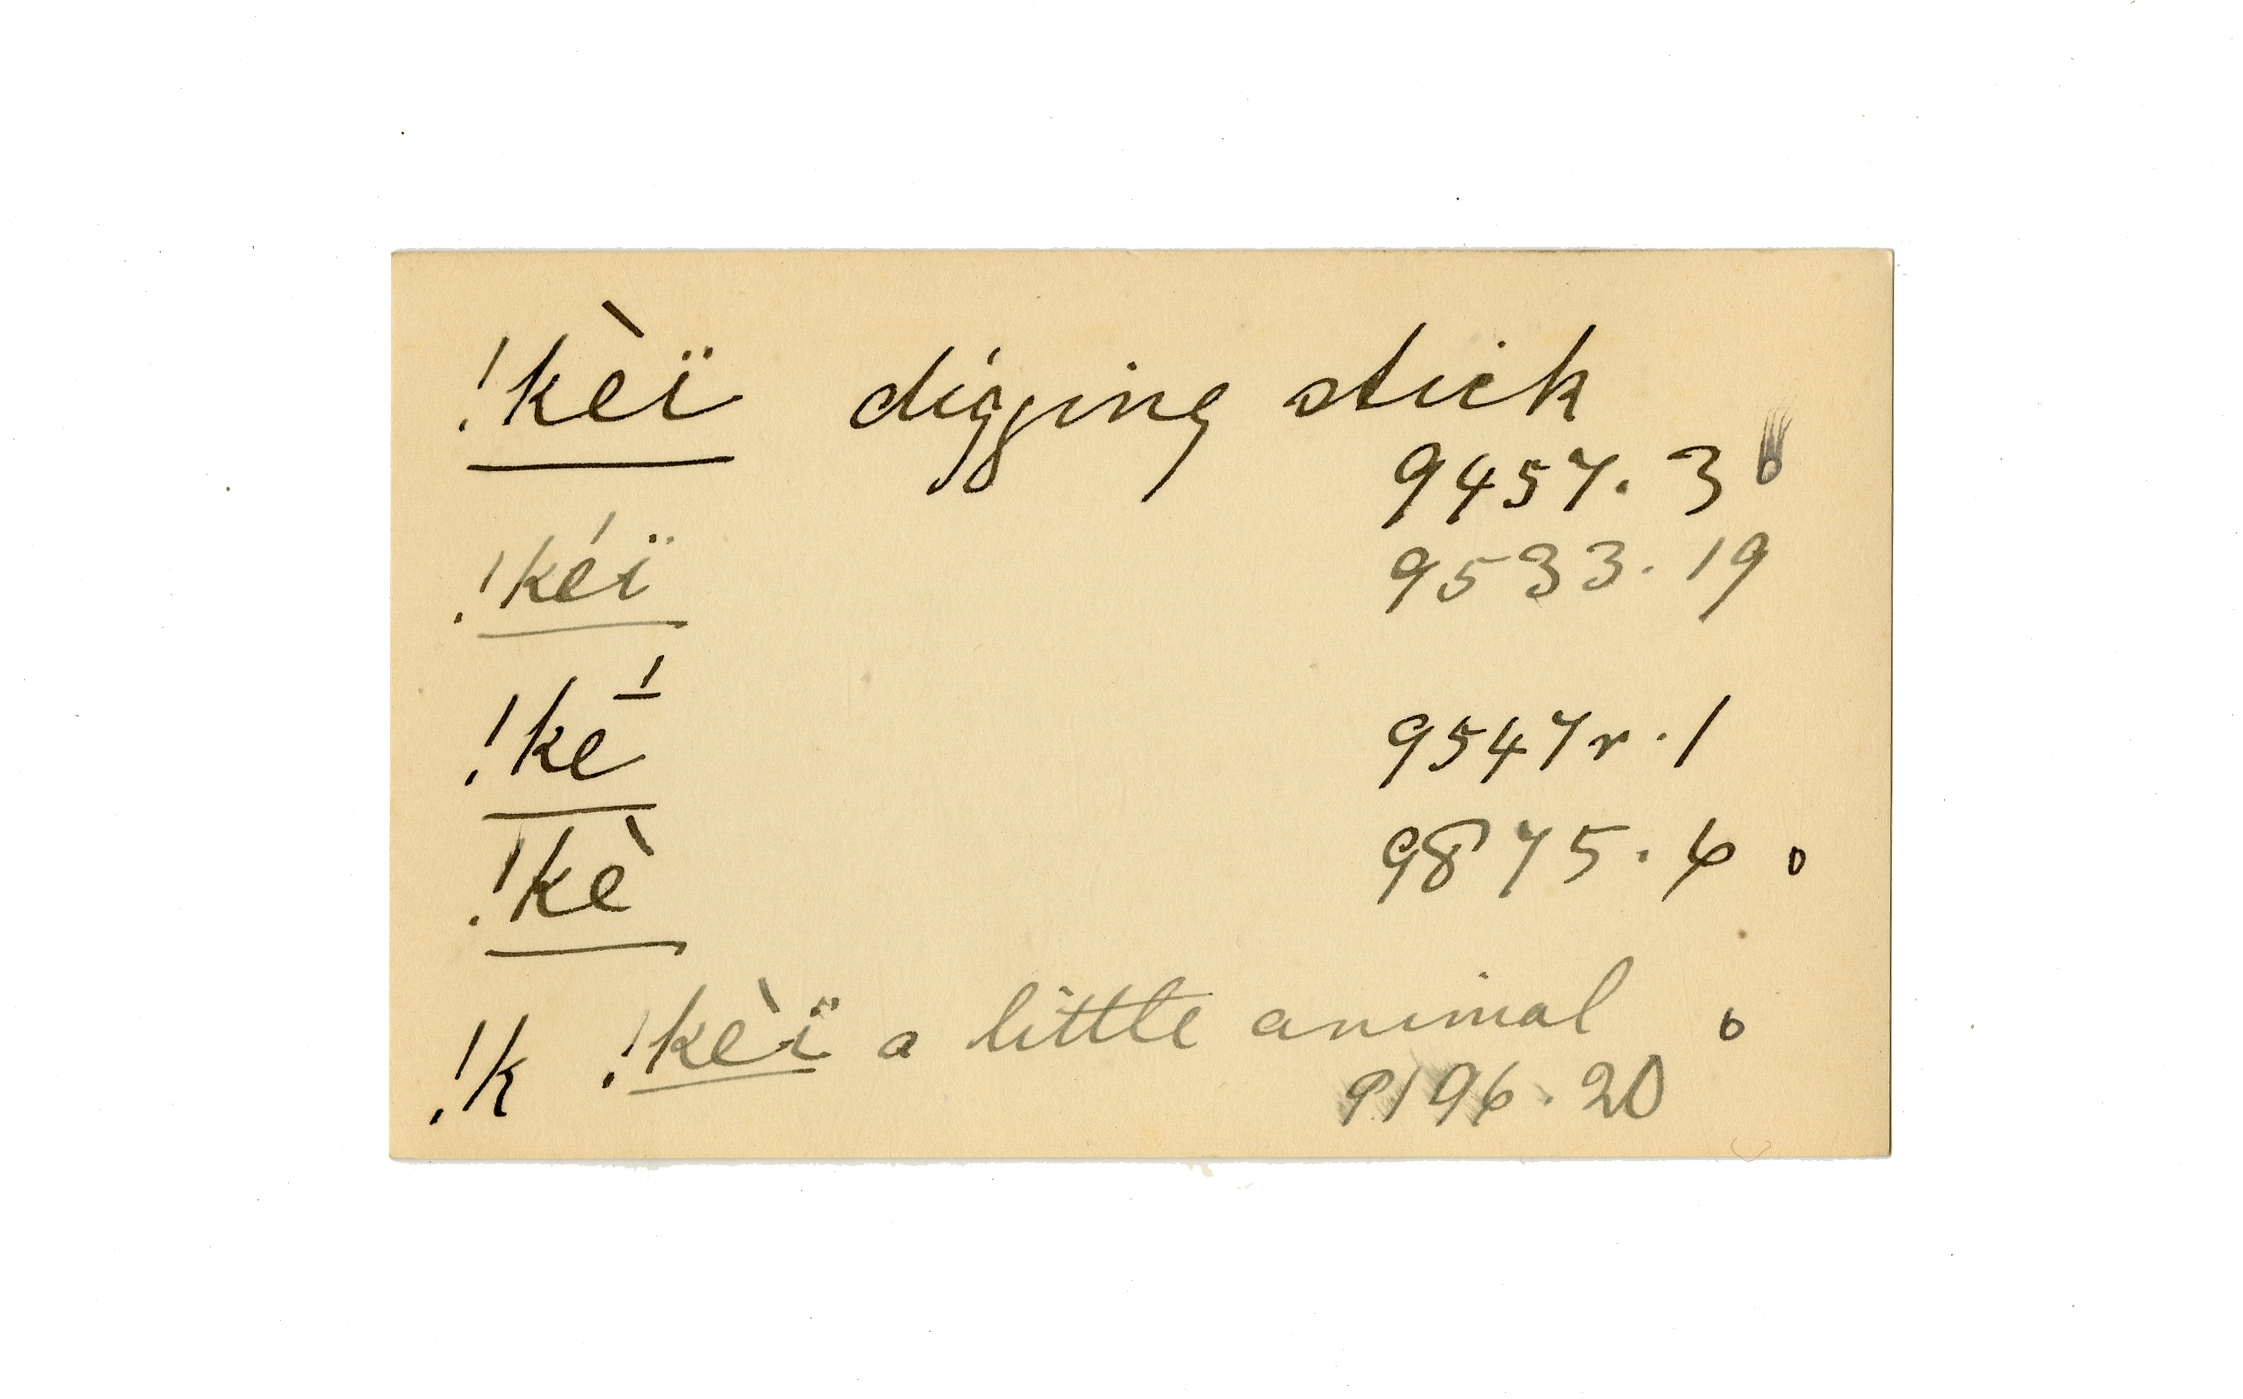 !kèï digging stick
9457.3 o
!kéï 9533.19
!ké̄ 9547r.1
!kè 9875.6 o
!k !kèï a little animal o
9196.20